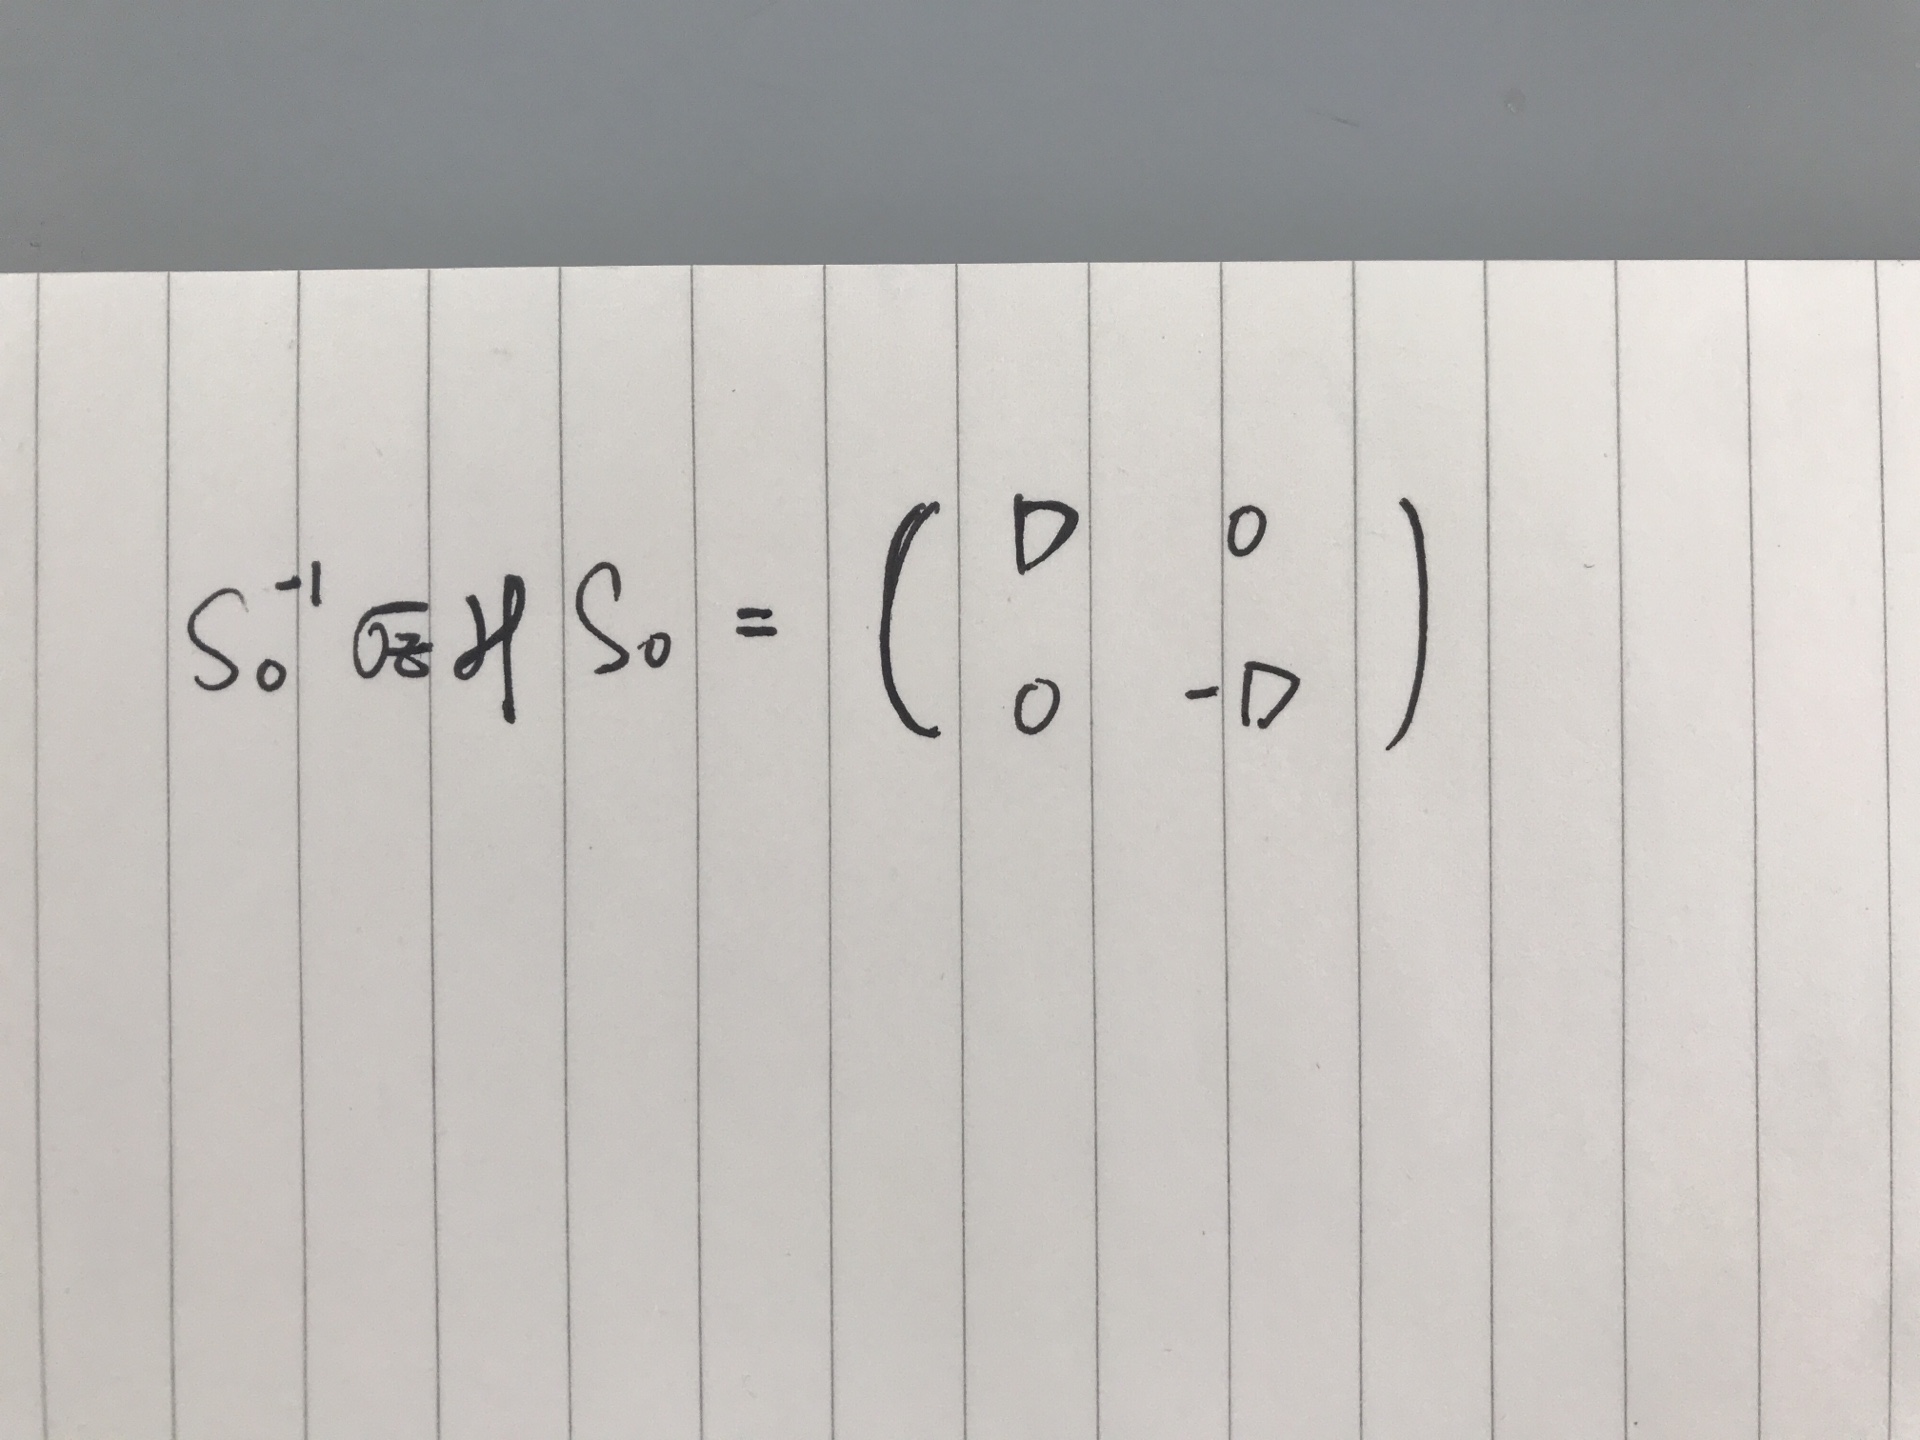 S₀⁻¹ σz H S₀ = ( D 0
0 -D )